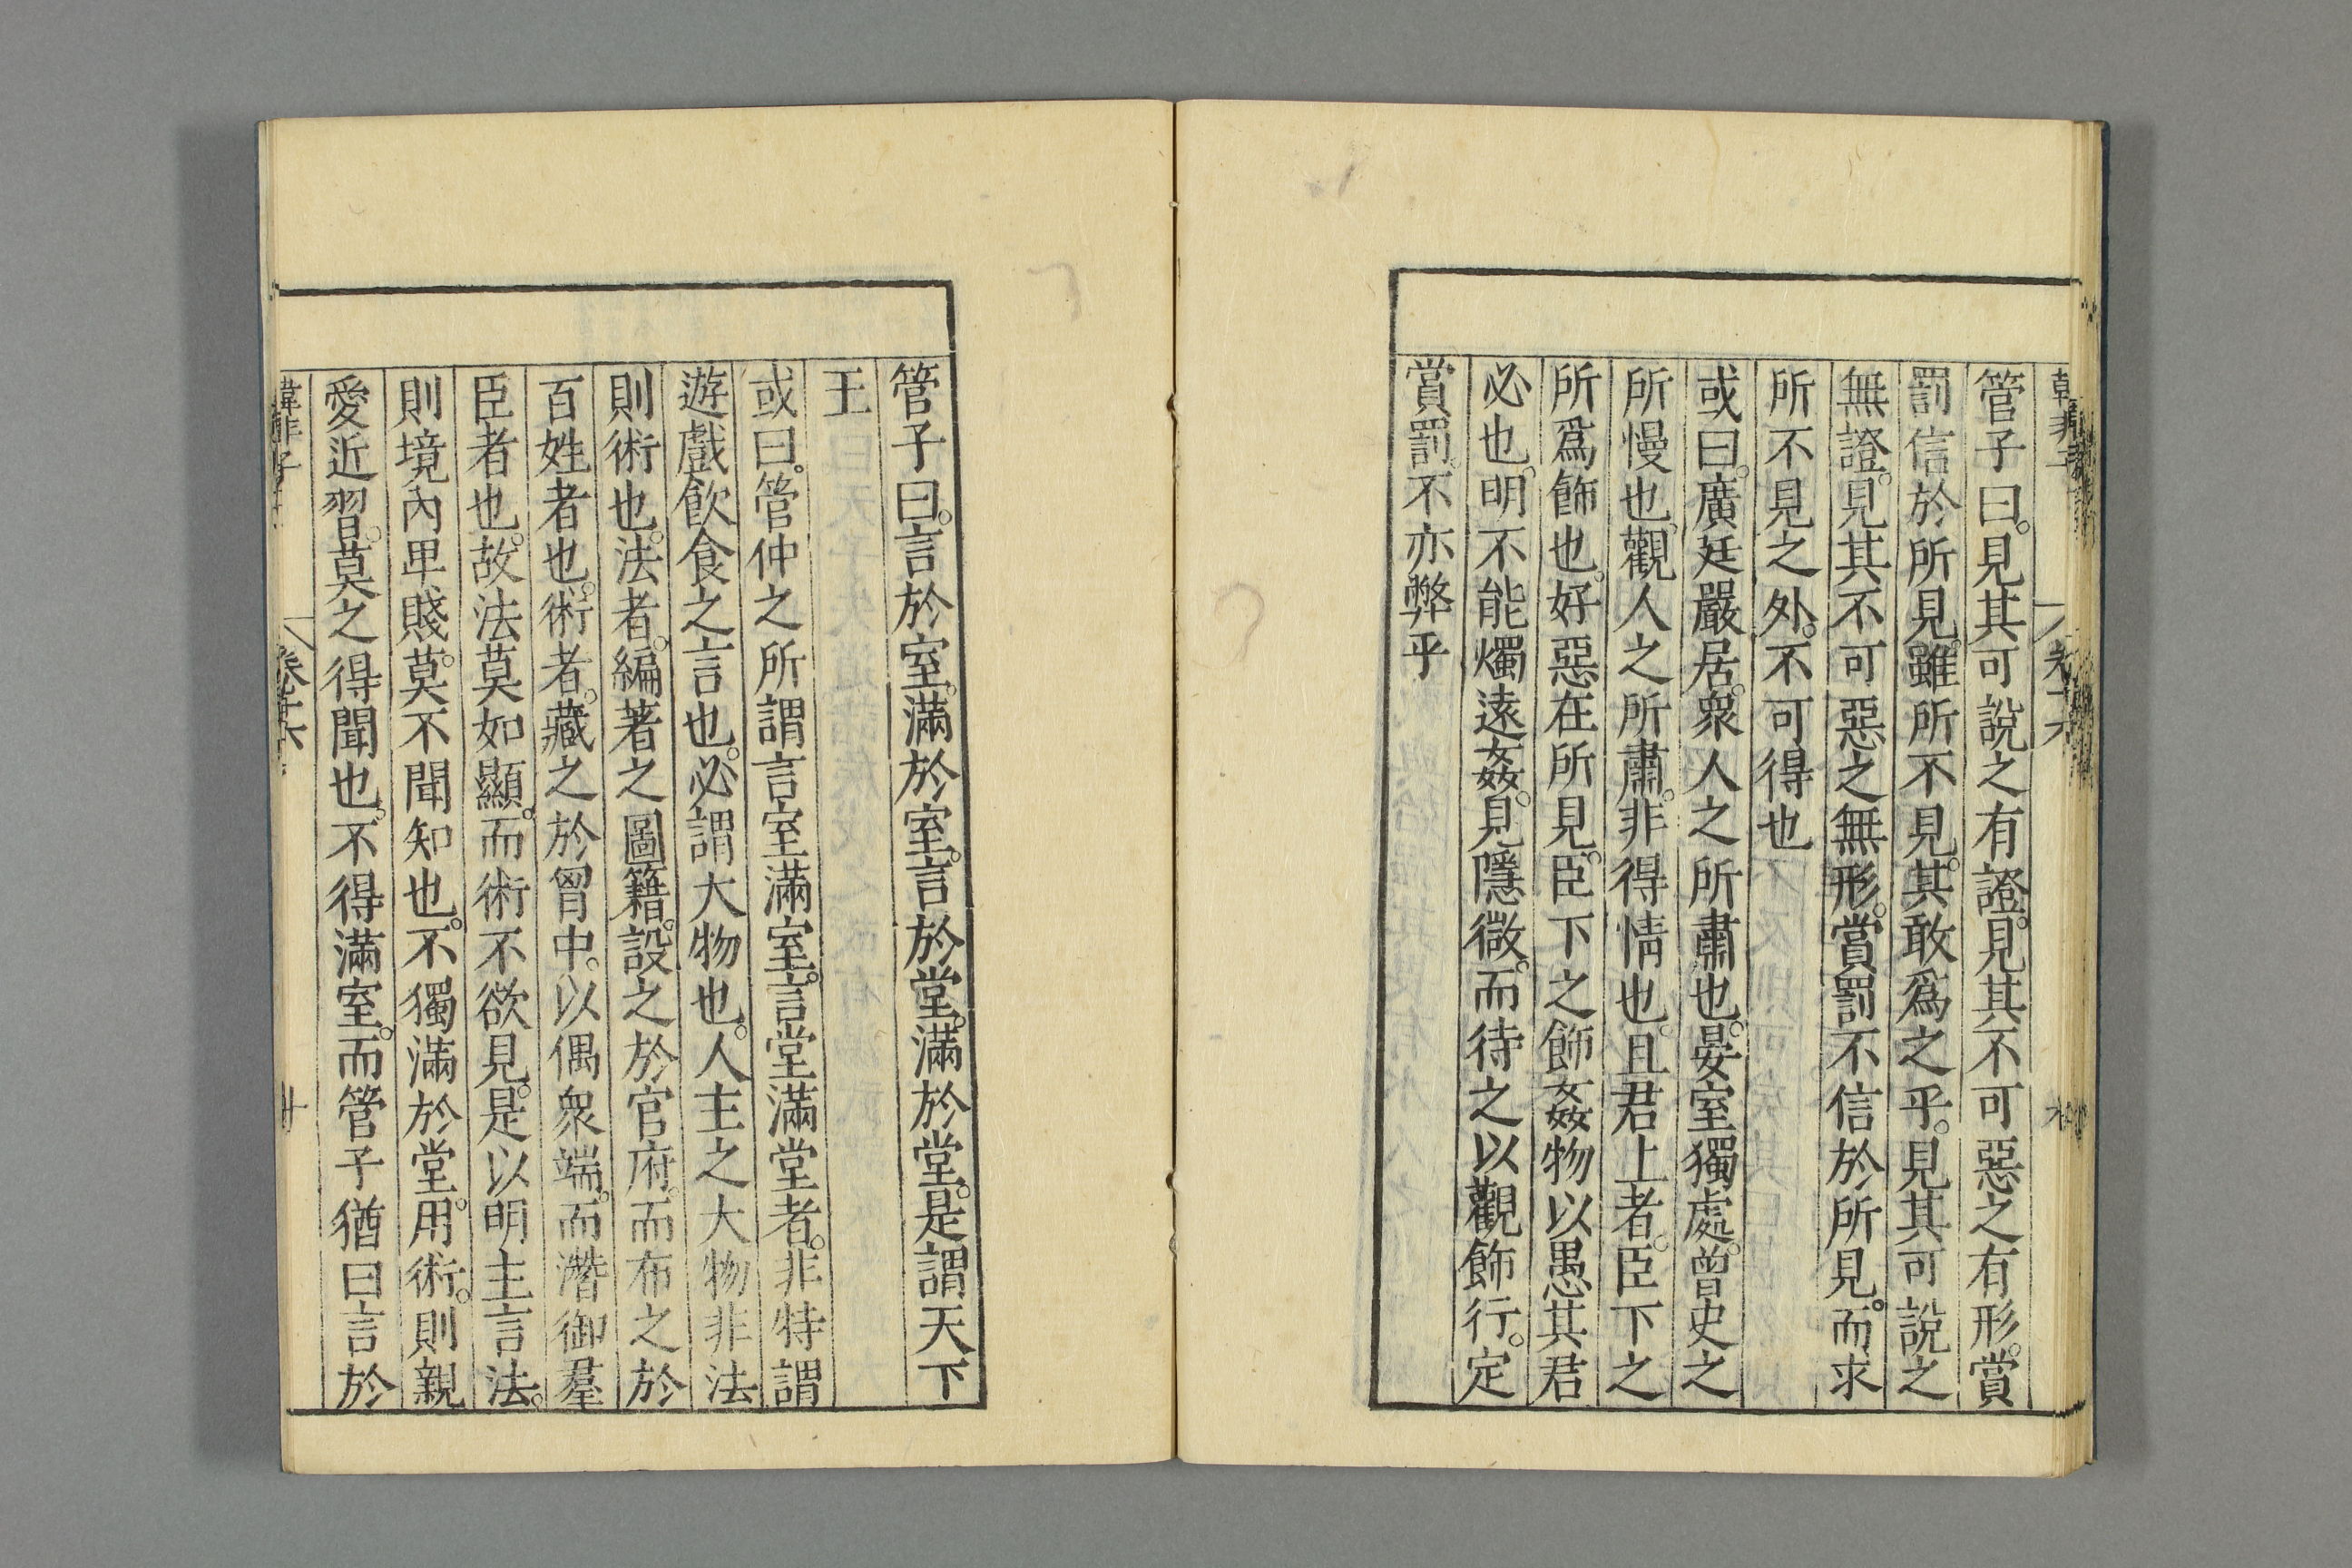 管子曰。見其可說之有證。見其不可惡之有形。賞
罰信於所見。雖所不見。其敢爲之乎。見其可說之
無證。見其不可惡之無形。賞罰不信於所見。而求
所不見之外。不可得也
或曰。廣廷嚴居。衆人之所肅也。晏室獨處。曾史之
所慢也。觀人之所肅。非得情也。且君上者。臣下之
所爲飾也。好惡在所見。臣下之飾姦物以愚其君
必也。明不能燭遠姦。見隱微。而待之以觀飾行。定
賞罰。不亦弊乎
管子曰。言於室。滿於室。言於堂。滿於堂。是謂天下
王
或曰。管仲之所謂言室滿室。言堂滿堂者。非特謂
遊戲飲食之言也。必謂大物也。人主之大物非法
則術也。法者。編著之圖籍。設之於官府。而布之於
百姓者也。術者。藏之於胷中。以偶衆端。而潛御羣
臣者也。故法莫如顯。而術不欲見。是以明主言法。
則境內卑賤。莫不聞知也。不獨滿於堂。用術。則親
愛近習。莫之得聞也。不得滿室。而管子猶曰言於
韓非子